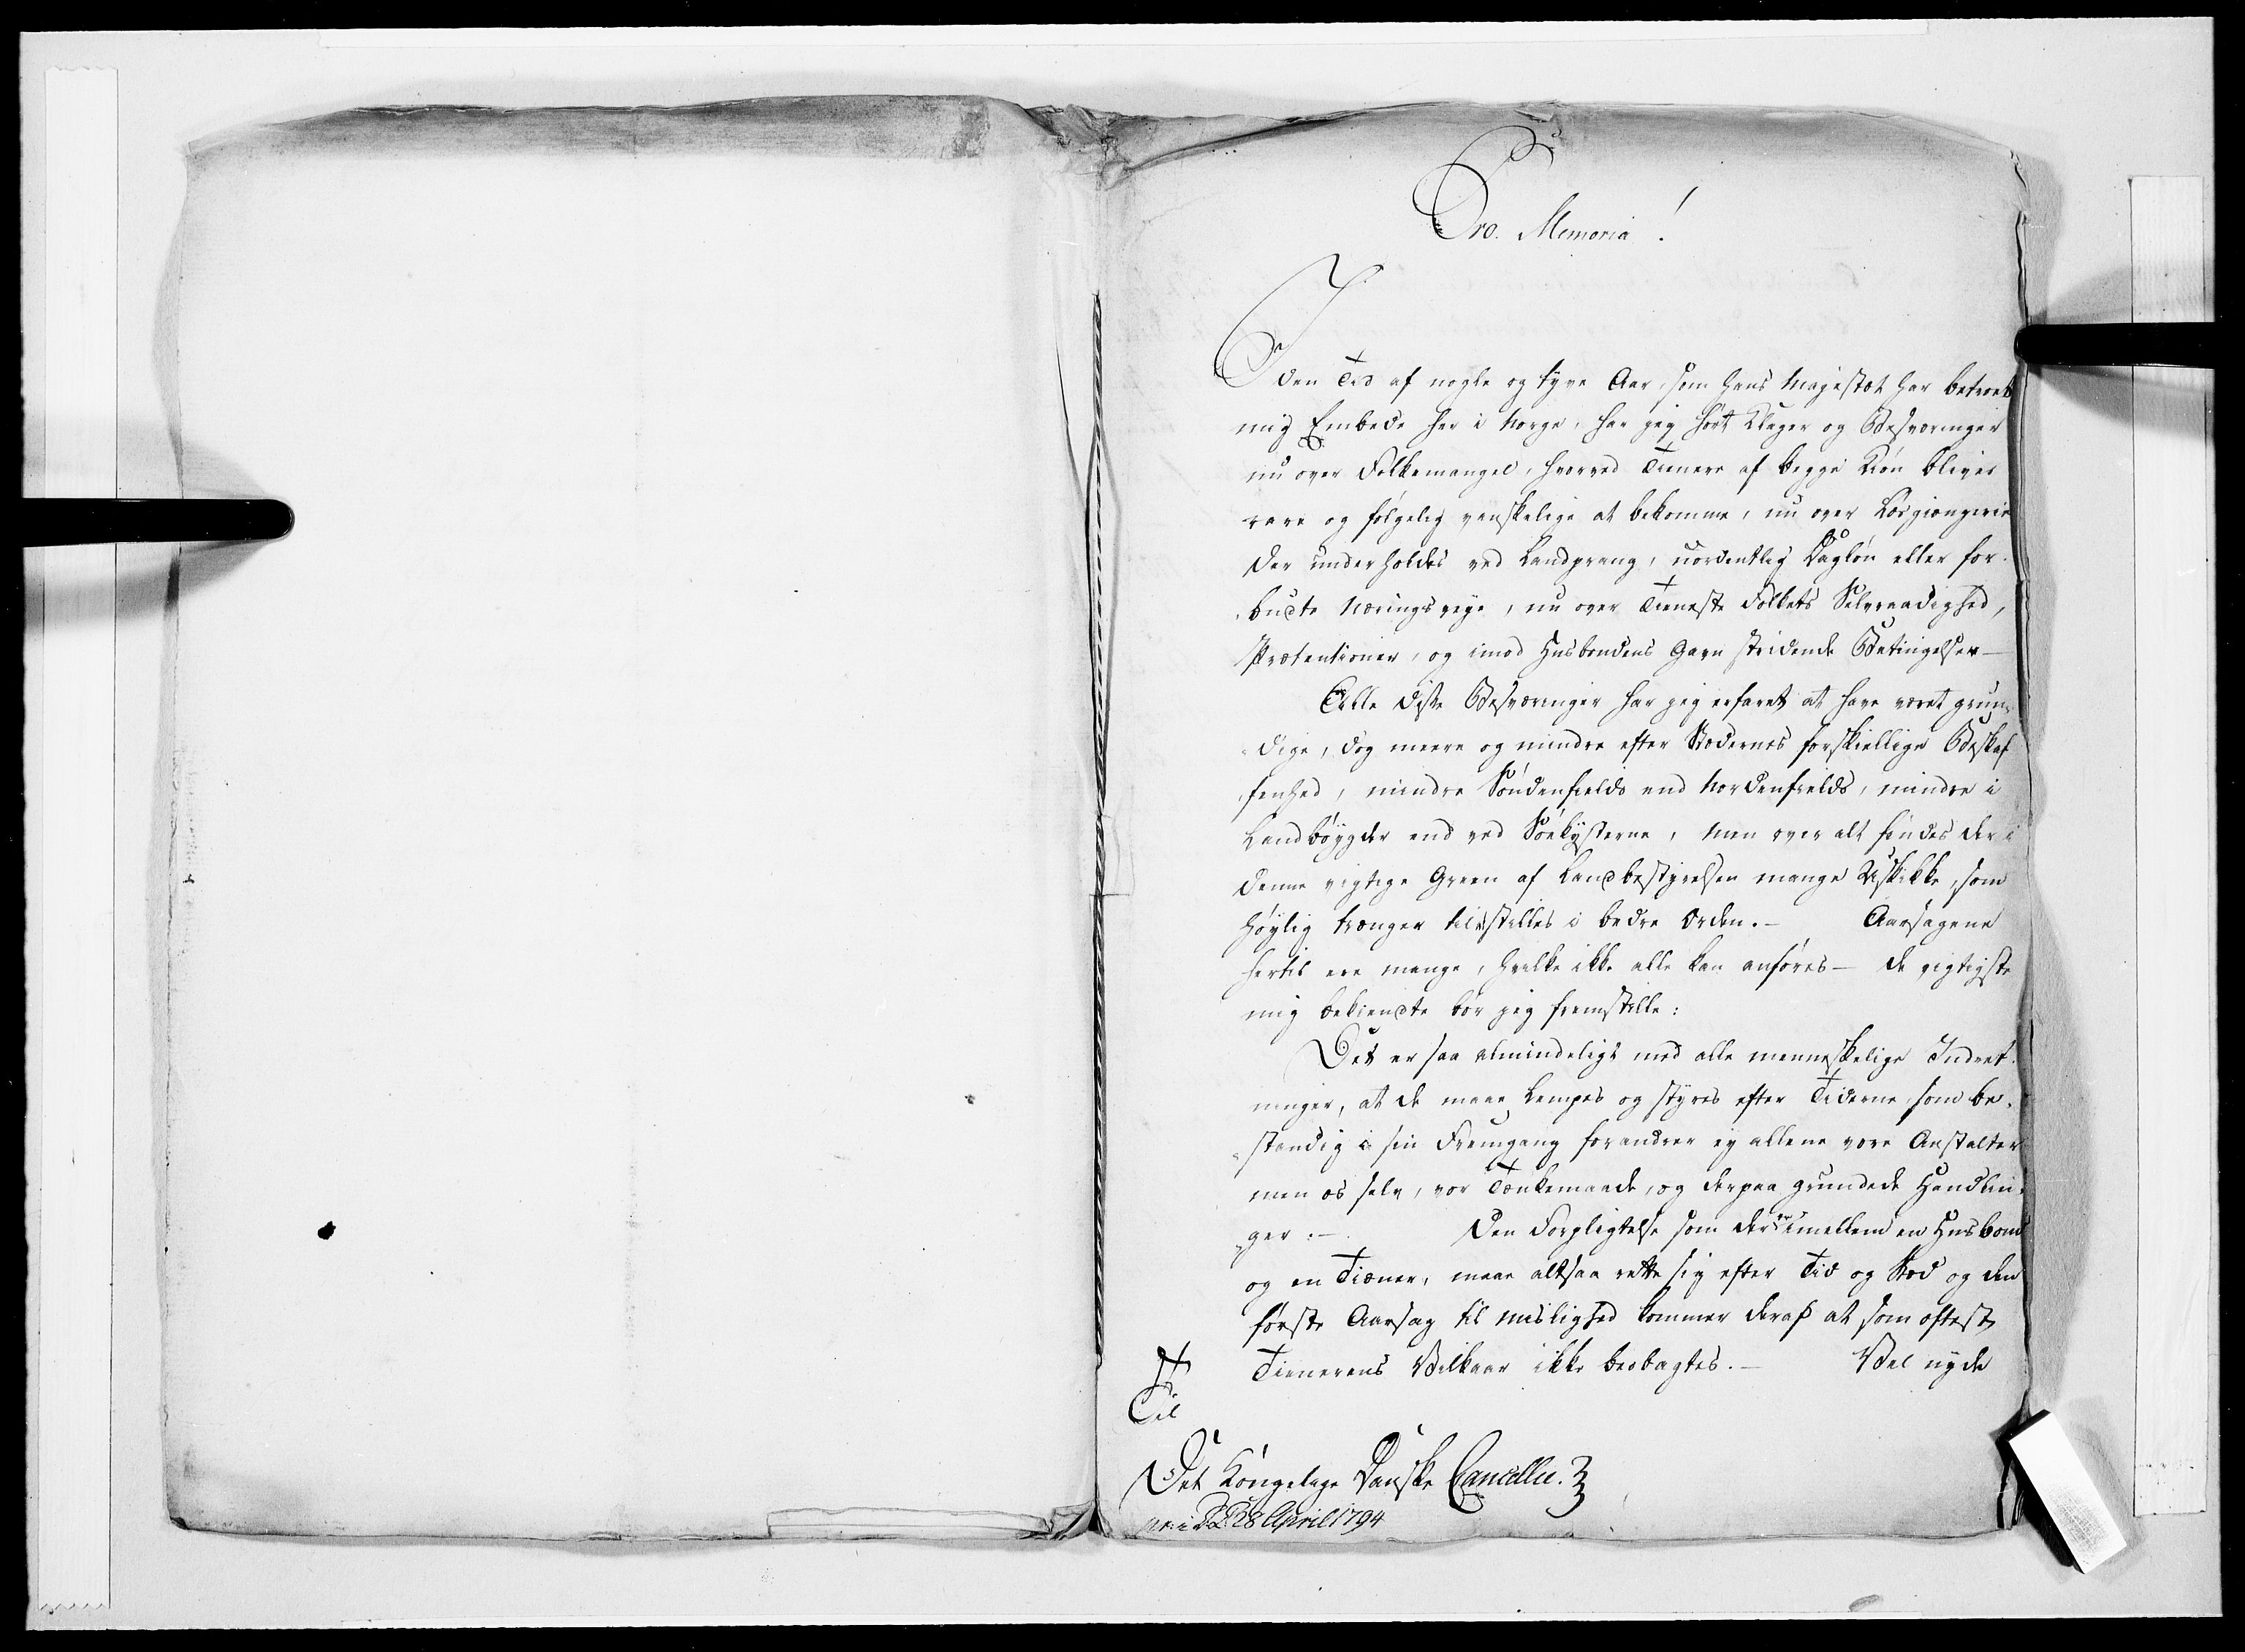 Pro. Memoria!
I den Tid af nogle og tyve Aar, som Hans Majestæt har betroet
mig Embede her i Norge, har jeg hört Klager og Besværinger
nu over Folkemangel, hvorved Tienere af begge Kiön bliver
rare og fölgelig vanskelige at bekomme, nu over Lösgiængerie
der underholdes ved Landprang, uordentlig Daglön eller for-
budte Næringsveye, nu over Tieneste Folkets Selvraadighed,
Prætentioner, og imod Husbondens Gavn stridende Betingelser –
Alle disse Besværinger har jeg erfaret at have været grun-
dige, dog meere og mindre efter Stædernes forskiellige Beskaf-
fenhed, mindre Söndenfields end Nordenfields, mindre i
Landböygder end ved Söekysterne, men over alt findes der i
denne vigtige Green af Landbestyrelsen mange Uskikke, som
höylig trænger til stilles i bedre Orden. – Aarsagene
hertil ere mange, hvilke ikke alle kan anföres – de vigtigste
mig bekiendte bör jeg fremstille:
Det er saa almindeligt med alle menneskelige Indret-
ninger, at de maae lempes og styres efter Tiderne, som be-
standig i sin Fremgang forandrer ey allene vore Anstalter
men os selv, vor Tænkemaade, og derpaa grundede Handlin-
ger. – Den Forpligtelse som der er imellem en Husbond
og en Tiener, maae altsaa rette sig efter Tid og Stæd og den
förste Aarsag til Mislighed kommer deraf at som oftest
Tienerens Vilkaar ikke beobagtes. – Vel nyde
Til
Det Kongelige Danske Cancellie.
28 April 1794